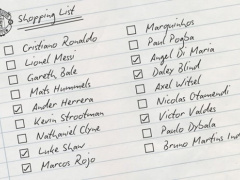 Shopping List
Cristiano Ronaldo
Lionel Messi
Gareth Bale
Mats Hummels
Ander Herrera
Kevin Strootman
Nathaniel Clyne
Luke Shaw
Marcos Rojo
Marquinhos
Paul Pogba
Angel Di Maria
Daley Blind
Axel Witsel
Nicolas Otamendi
Victor Valdes
Paulo Dybala
Bruno Martins Ind